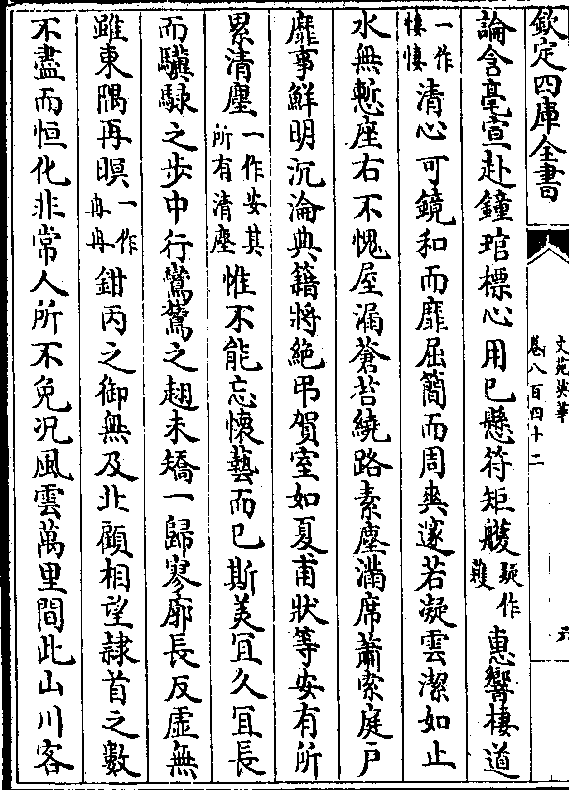 欽定四庫全書
文苑英華
卷八百四十二
六
論含毫宣赴鐘琯標心用已懸符矩䂄疑作
䕶惠響棲道
一作
悽悽清心可鏡和而靡屈簡而周爽邃若凝雲潔如止
水無慙座右不愧屋漏蒼苔繞路素塵滿席蕭索庭戶
靡事鮮明沉淪典籍將絶弔賀室如夏甫狀等安有所
累清塵一作安其
所有清塵惟不能忘懷藝而已斯美宜久宜長
而驥騄之步中行鸞鷟之翅未矯一歸寥廓長反虛無
雖東隅再暝一作
冉冉鉗丙之御無及北顧相望隷首之數
不盡而恒化非常人所不免况風雲萬里間此山川客